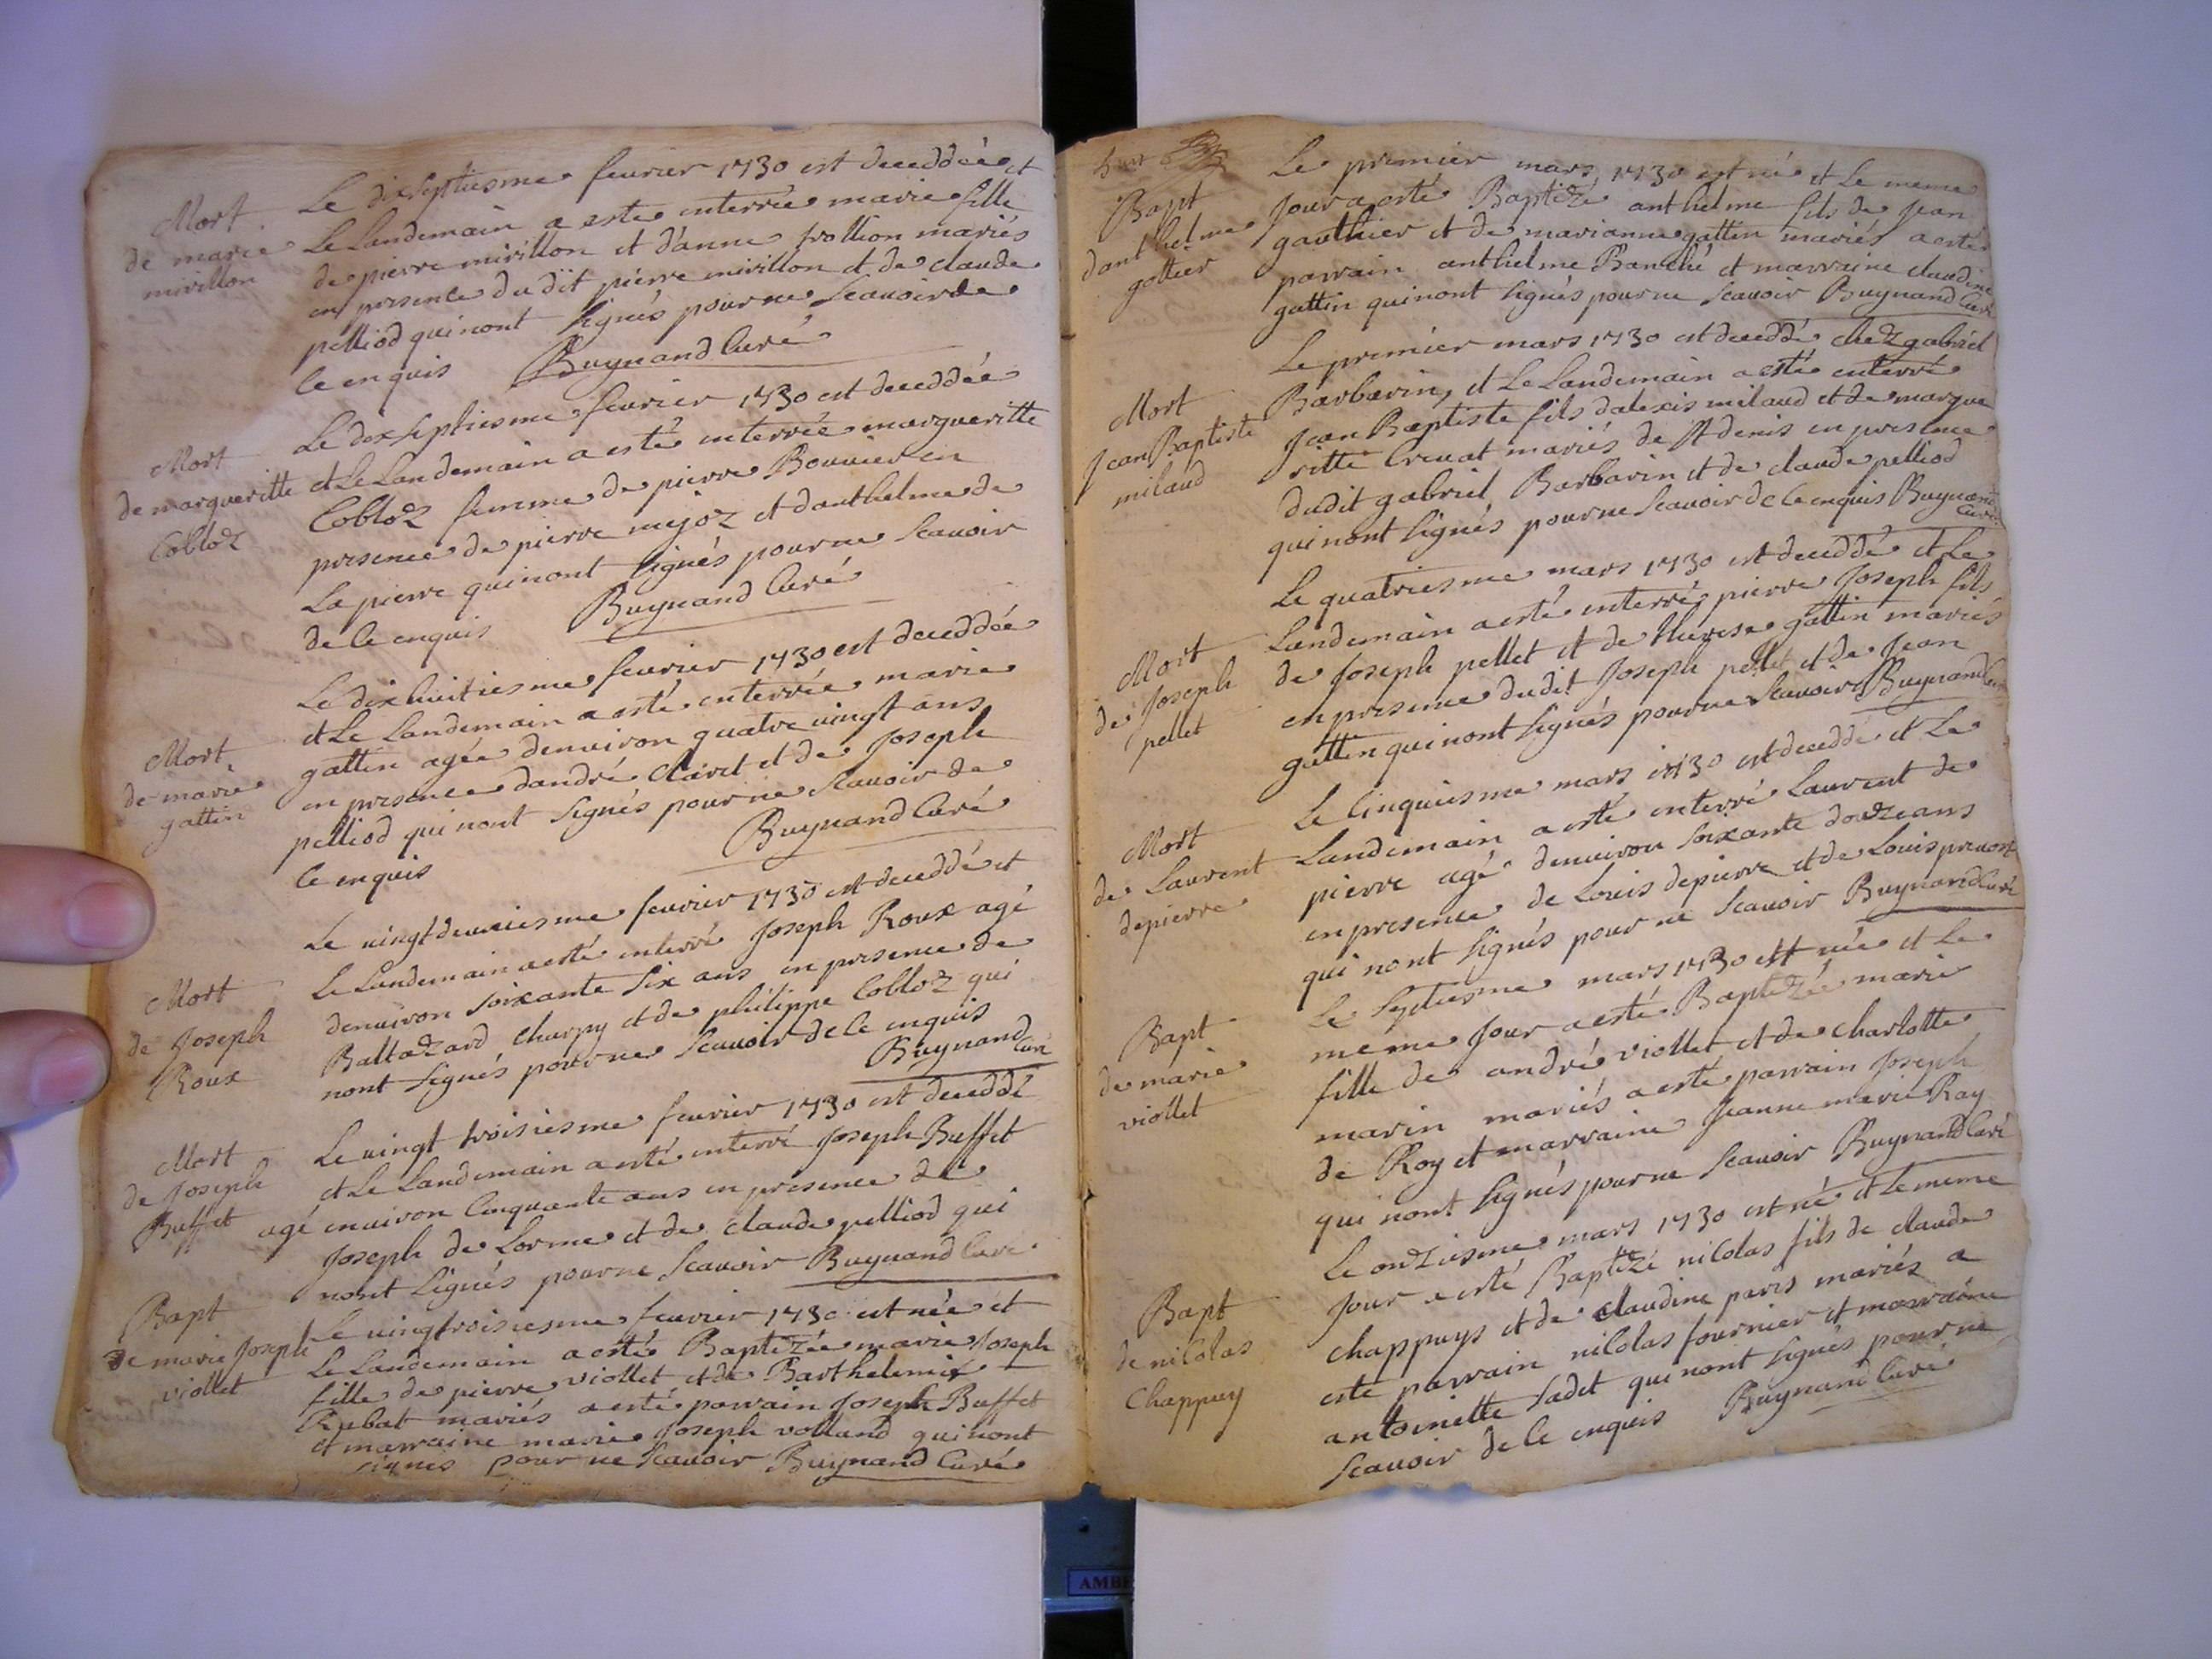 Mort
de marie
mirillon
Le dixseptiesme feurier 1730 est deceddée et
Le Landemain a esté enterrée marie fille
de pierre mirillon et d'anne trollion mariés
en presence du dit pierre mirillon et de claude
pelliod qui nont signés pour ne scauoir de
ce enquis Buynand Curé
Mort
de margueritte
Cobloz
Le dixseptiesme feurier 1730 est deceddée
et Le Landemain a esté enterrée margueritte
Cobloz femme de pierre Bouuier en
presence de pierre mejoz et danthelme de
La pierre qui nont signés pour ne scauoir
de ce enquis Buynand Curé
Mort
de marie
gattin
Le dixhuitiesme feurier 1730 est deceddée
et Le Landemain a esté enterrée marie
gattin agée denuiron quatre uingt ans
en presence dandré claret et de Joseph
pelliod qui nont signés pour ne scauoir de
ce enquis Buynand Curé
Mort
de Joseph
Roux
Le uingtdeuxiesme feurier 1730 est deceddé et
Le Landemain a esté enterré Joseph Roux agé
denuiron soixante six ans en presence de
Baltazard charpy et de philippe Cobloz qui
nont signés pour ne scauoir de ce enquis
Buynand Curé
Mort
de Joseph
Buffet
Le uingt troisiesme feurier 1730 est deceddé
et Le Landemain a esté enterré Joseph Buffet
agé enuiron Cinquante ans en presence de
Joseph de Lorme et de claude pelliod qui
nont signés pour ne scauoir Buynand Curé
Bapt
de marie Joseph
viollet
Le uingtroisiesme feurier 1730 est née et
Le Landemain a esté Baptizée marie Joseph
fille de pierre viollet et de Barthelemie
Rubat mariés a esté parrain Joseph Buffet
et marraine marie Joseph volland qui nont
signés pour ne scauoir Buynand Curé
Bapt
danthelme
gottier
Le premier mars 1730 est né et Le meme
Jour a esté Baptizé anthelme fils de Jean
gauthier et de marianne gattin mariés a esté
parrain anthelme Banché et marraine claudine
gattin qui nont signés pour ne scauoir Buynand Curé
Mort
Jean Baptiste
milaud
Le premier mars 1730 est deceddé chez gabriel
Barbarin, et Le Landemain a esté enterré
Jean Baptiste fils dalexis milaud et de margue
ritte Creuat mariés de St denis en presence
dudit gabriel Barbarin et de claude pelliod
qui nont signés pour ne scauoir de ce enquis Buynand
Curé
Mort
de Joseph
pellet
Le quatriesme mars 1730 est deceddé et Le
Landemain a esté enterré pierre Joseph fils
de Joseph pellet et de therese gattin mariés
en presence dudit Joseph pellet et de Jean
gattin qui nont signés pour ne scauoir Buynand Curé
Mort
de Laurent
depierre
Le Cinquiesme mars 1730 est deceddé et Le
Landemain a esté enterré Laurent de
pierre agé denuiron soixante douze ans
en presence de Louis depierre et de Louis preuost
qui nont signés pour ne scauoir Buynand Curé
Bapt
de marie
viollet
Le septiesme mars 1730 est née et Le
meme Jour a esté Baptizée marie
fille de andré viollet et de charlotte
marin mariés a esté parrain Joseph
de Roy et marraine Jeanne marie Ray
qui nont signés pour ne scauoir Buynand Curé
Bapt
de nicolas
Chappuy
Le onziesme mars 1730 est né et Le meme
Jour a esté Baptizé nicolas fils de claude
chappuys et de claudine paris mariés a
esté parrain nicolas fournier et marraine
antoinette sadet qui nont signés pour ne
scauoir de ce enquis Buynand Curé